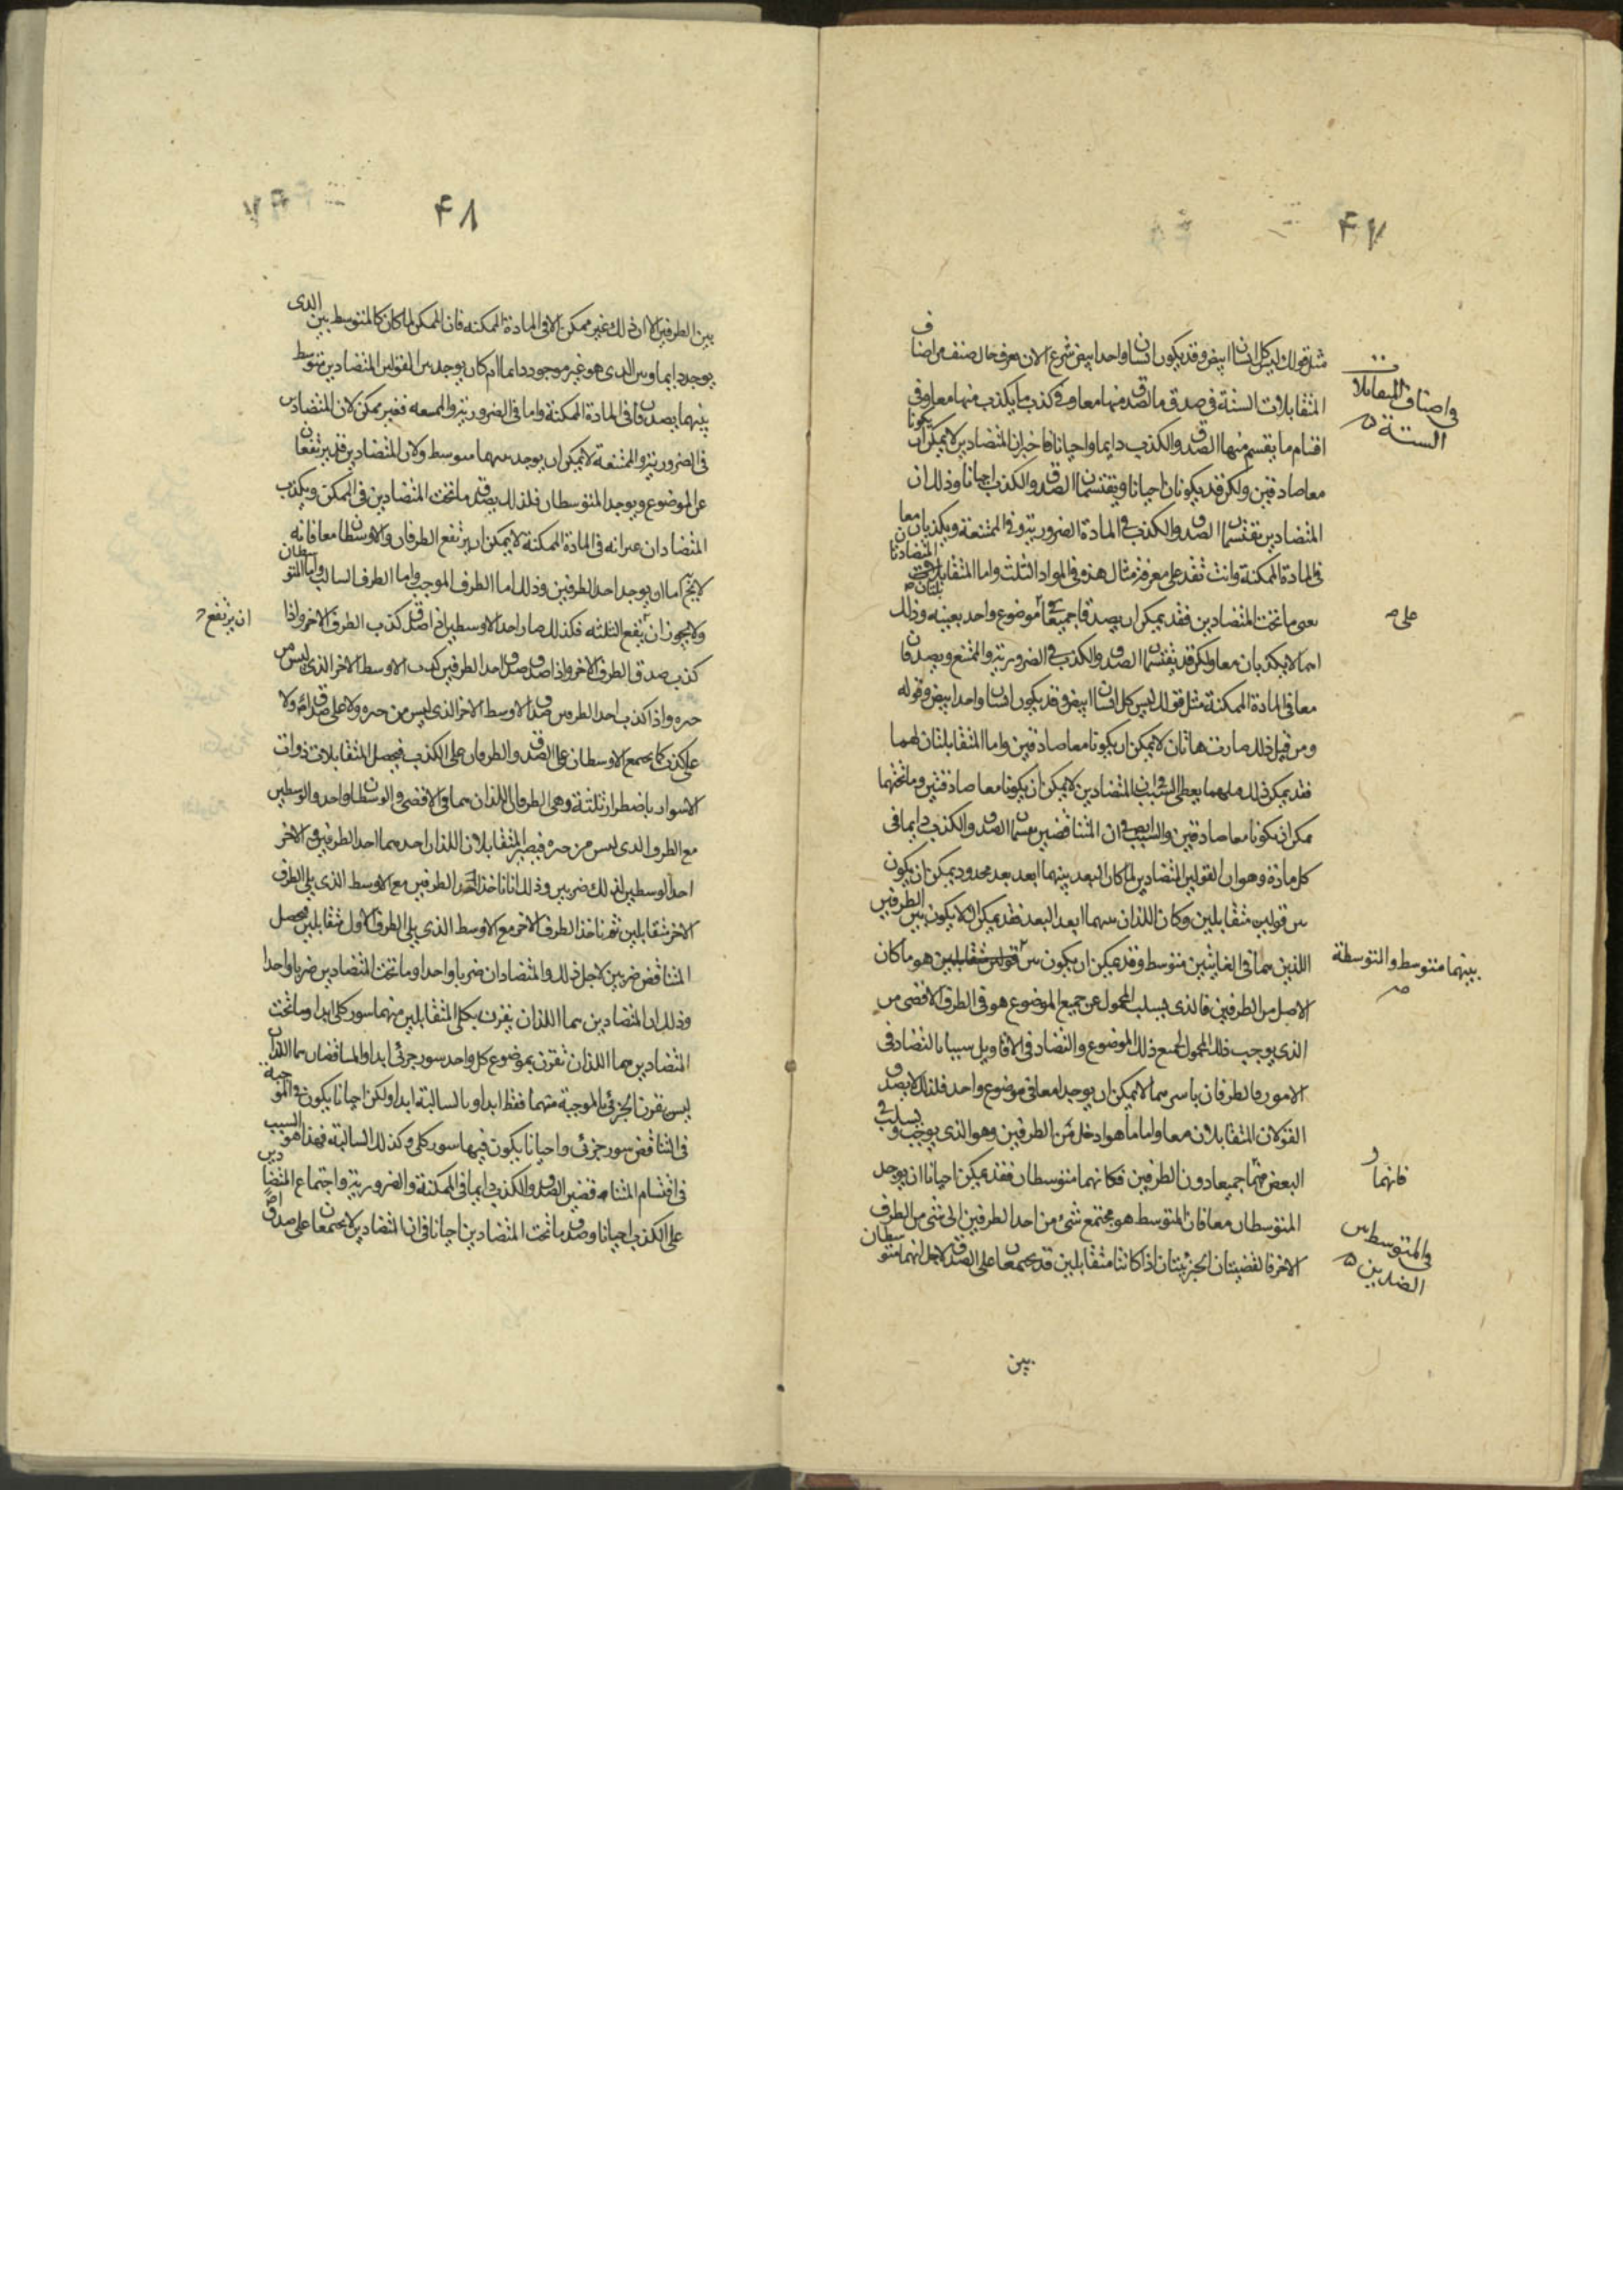 ۴۷
مثل قولك ليس كل انسان ابيض وقد يكون انسان واحد ابيض شرع الان يعرف حال صنف صنف من اصناف
المتقابلات الستة فى صدق ما يصدق منها معا وفى كذب ما يكذب منها معا وفى
اقتسام ما يقتسم منها الصدق والكذب دايما واحيانا فاخبر ان المتضادين لا يمكن ان يكونا
معا صادقين ولكن قد يكونان احيانا ويقتسمان الصدق والكذب احيانا وذلك ان
المتضادين يقتسمان الصدق والكذب فى المادة الضرورية وفى الممتنعة ويكذبان معا
فى المادة الممكنة وانت تقدر على معرفة مثال هذه فى المواد الثلث واما المتقابلتان
يعنى ما تحت المتضادين فقد يمكن ان يصدقا جميعا فى موضوع واحد بعينه وذلك
انهما لا يكذبان معا ولكن قد يقتسمان الصدق والكذب فى الضرورية والممتنع ويصدقان
معا فى المادة الممكنة مثل قولك ليس كل انسان ابيض وقد يكون انسان واحد ابيض وقوله
ومن قبل ذلك صارت هاتان لا يمكن ان يكونا معا صادقتين واما المتقابلتان لهما
فقد يمكن ذلك فيهما يعطى السبب فى ان المتضادين لا يمكن ان يكونا معا صادقتين وما تحتهما
يمكن ان يكونا معا صادقين والسبب ايضا فى ان المتناقضين يقتسمان الصدق والكذب دايما فى
كل مادة وهو ان القولين المتضادين لما كان البعد بينهما ابعد بعد محدود يمكن ان يكون
بين قولين متقابلين وكان اللذان بينهما ابعد البعد فقد يمكن ان لا يكون بين الطرفين
اللذين هما فى الغايتين متوسط وقد يمكن ان يكون بين قولين متقابلين هو ما كان
الاصل من الطرفين فالذى يسلب المحمول عن جميع الموضوع هو فى الطرف الاقصى من
الذى يوجب ذلك المحمول لجميع ذلك الموضوع والتضاد فى الاقاويل شبيه بالتضاد فى
الامور فالطرفان باسرهما لا يمكن ان يوجدا معا فى موضوع واحد فلذلك لا يصدق
القولان المتقابلان معا واما ما هو ادخل من الطرفين وهو الذى يوجب ويسلب فى
البعض فهما جميعا دون الطرفين فكانهما متوسطان فقد يمكن احيانا ان يوجد
المتوسطان معا فان المتوسط هو مجتمع شىء من احد الطرفين الى شىء من الطرف
الاخر فالقضيتان الجزئيتان اذا كانتا متقابلتين قد تجتمعان على الصدق لاجل انهما متوسطتان
بين
فى اصناف المتقابلات
الستة
على
بينهما متوسط والمتوسطة
فانهما
فى المتوسط بين
الضدين
۴۸
بين الطرفين الا ان ذلك غير ممكن الا فى المادة الممكنه فان الممكن لما كان كالمتوسط بين الذى
يوجد دايما وبين الذى هو غير موجود دايما امكن ان يوجد بين القولين المتضادين متوسط
بينهما يصدقان فى المادة الممكنة واما فى الضرورية والممتنعه فغير ممكن لان المتضادين
فى الضرورية والممتنعة لا يمكن ان يوجد بينهما متوسط ولان المتضادين قد يرتفعان
عن الموضوع ويوجد المتوسطان فلذلك يصدق ما تحت المتضادين فى الممكن ويكذب
المتضادان غير انه فى المادة الممكنة لا يمكن ان يرتفع الطرفان والاوسطان معا فانه
لا يخ اما ان يوجد احد الطرفين وذلك اما الطرف الموجب واما الطرف السالب واما المتوسطان
ولا يجوز ان يرتفع الثلثه فكذلك صار احد الاوسطين اذا صدق كذب الطرف الاخر واذا
كذب صدق الطرف الاخر واذا صدق احد الطرفين كذب الاوسط الاخر الذى ليس من
حيزه واذا كذب احد الطرفين صدق الاوسط الاخر الذى ليس من حيزه ولا على صدق دائم ولا
على كذب كما يجتمع الاوسطان على الصدق والطرفان على الكذب فيحصل المتقابلات ذوات
الاسوار باضطرار ثلثة وهى الطرفان اللذان هما فى الاقصى والوسطان واحد والوسطين
مع الطرف الذى ليس من حيزه فيصير المتقابلان اللذان احدهما احد الطرفين والاخر
احد الوسطين لذلك ضربين وذلك انا ناخذ احد الطرفين مع الاوسط الذى يلى الطرف
الاخر متقابلين ثم ناخذ الطرف الاخر مع الاوسط الذى يلى الطرف الاول متقابلين فيحصل
المتناقض ضربين لاجل ذلك والمتضادان ضربا واحدا وما تحت المتضادين ضربا واحدا
وذلك ان المتضادين هما اللذان يقرن بكلى المتقابلين منهما سور كلى ابدا وما تحت
المتضادين هما اللذان تقرن بموضوع كل واحد سور جزئى ابدا والمتناقضان هما اللذان
ليس يقرن الجزئى بالموجبة منهما فقط ابدا وبالسالبة ابدا ولكن احيانا يكون فى الموجبة
فى التناقض سور جزئى واحيانا يكون فيها سور كلى وكذلك السالبة فهذا هو السبب
فى اقتسام المتناقضين الصدق والكذب دايما فى الممكنة والضرورية واجتماع المتضادين
على الكذب احيانا وصدق ما تحت المتضادين احيانا فان المتضادين لا يجتمعان على صدق اصلا
ان يرتفع